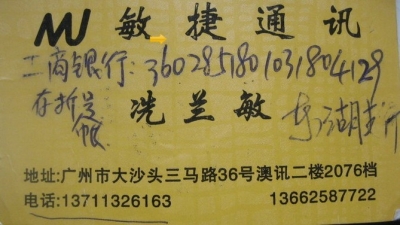 MJ 敏捷通讯
工商银行: 3602851801031804129
存折号
冼兰敏
地址:广州市大沙头三马路36号澳讯二楼2076档
电话:13711326163 13662587722